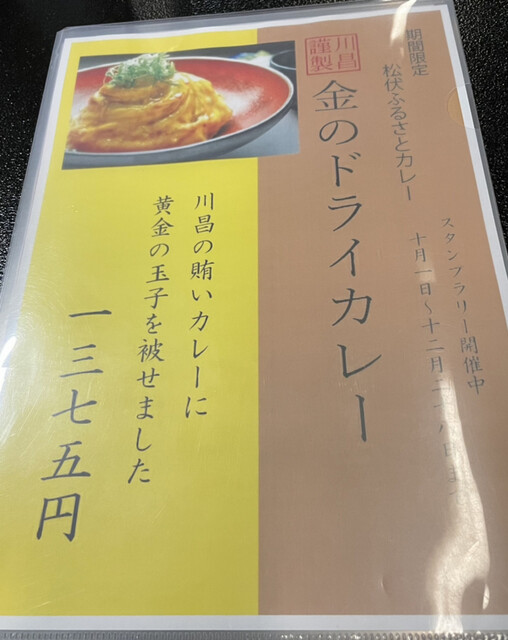 期間限定
松伏ふるさとカレー
スタンプラリー開催中
十月一日～十二月二十八日まで
川昌
謹製
金のドライカレー
川昌の賄いカレーに
黄金の玉子を被せました
一三七五円